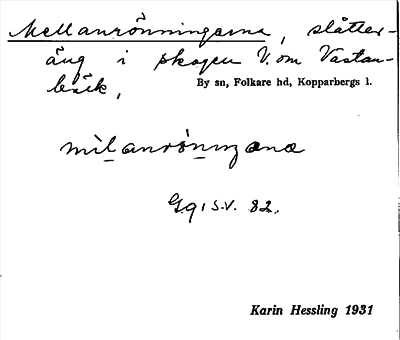 Mellanrönningarna, slåtter-
äng i skogen V. om Västan-
bäck,
By sn, Folkare hd, Kopparbergs l.
milanrönningana
Gg 1 S.V. 82.
Karin Hessling 1931